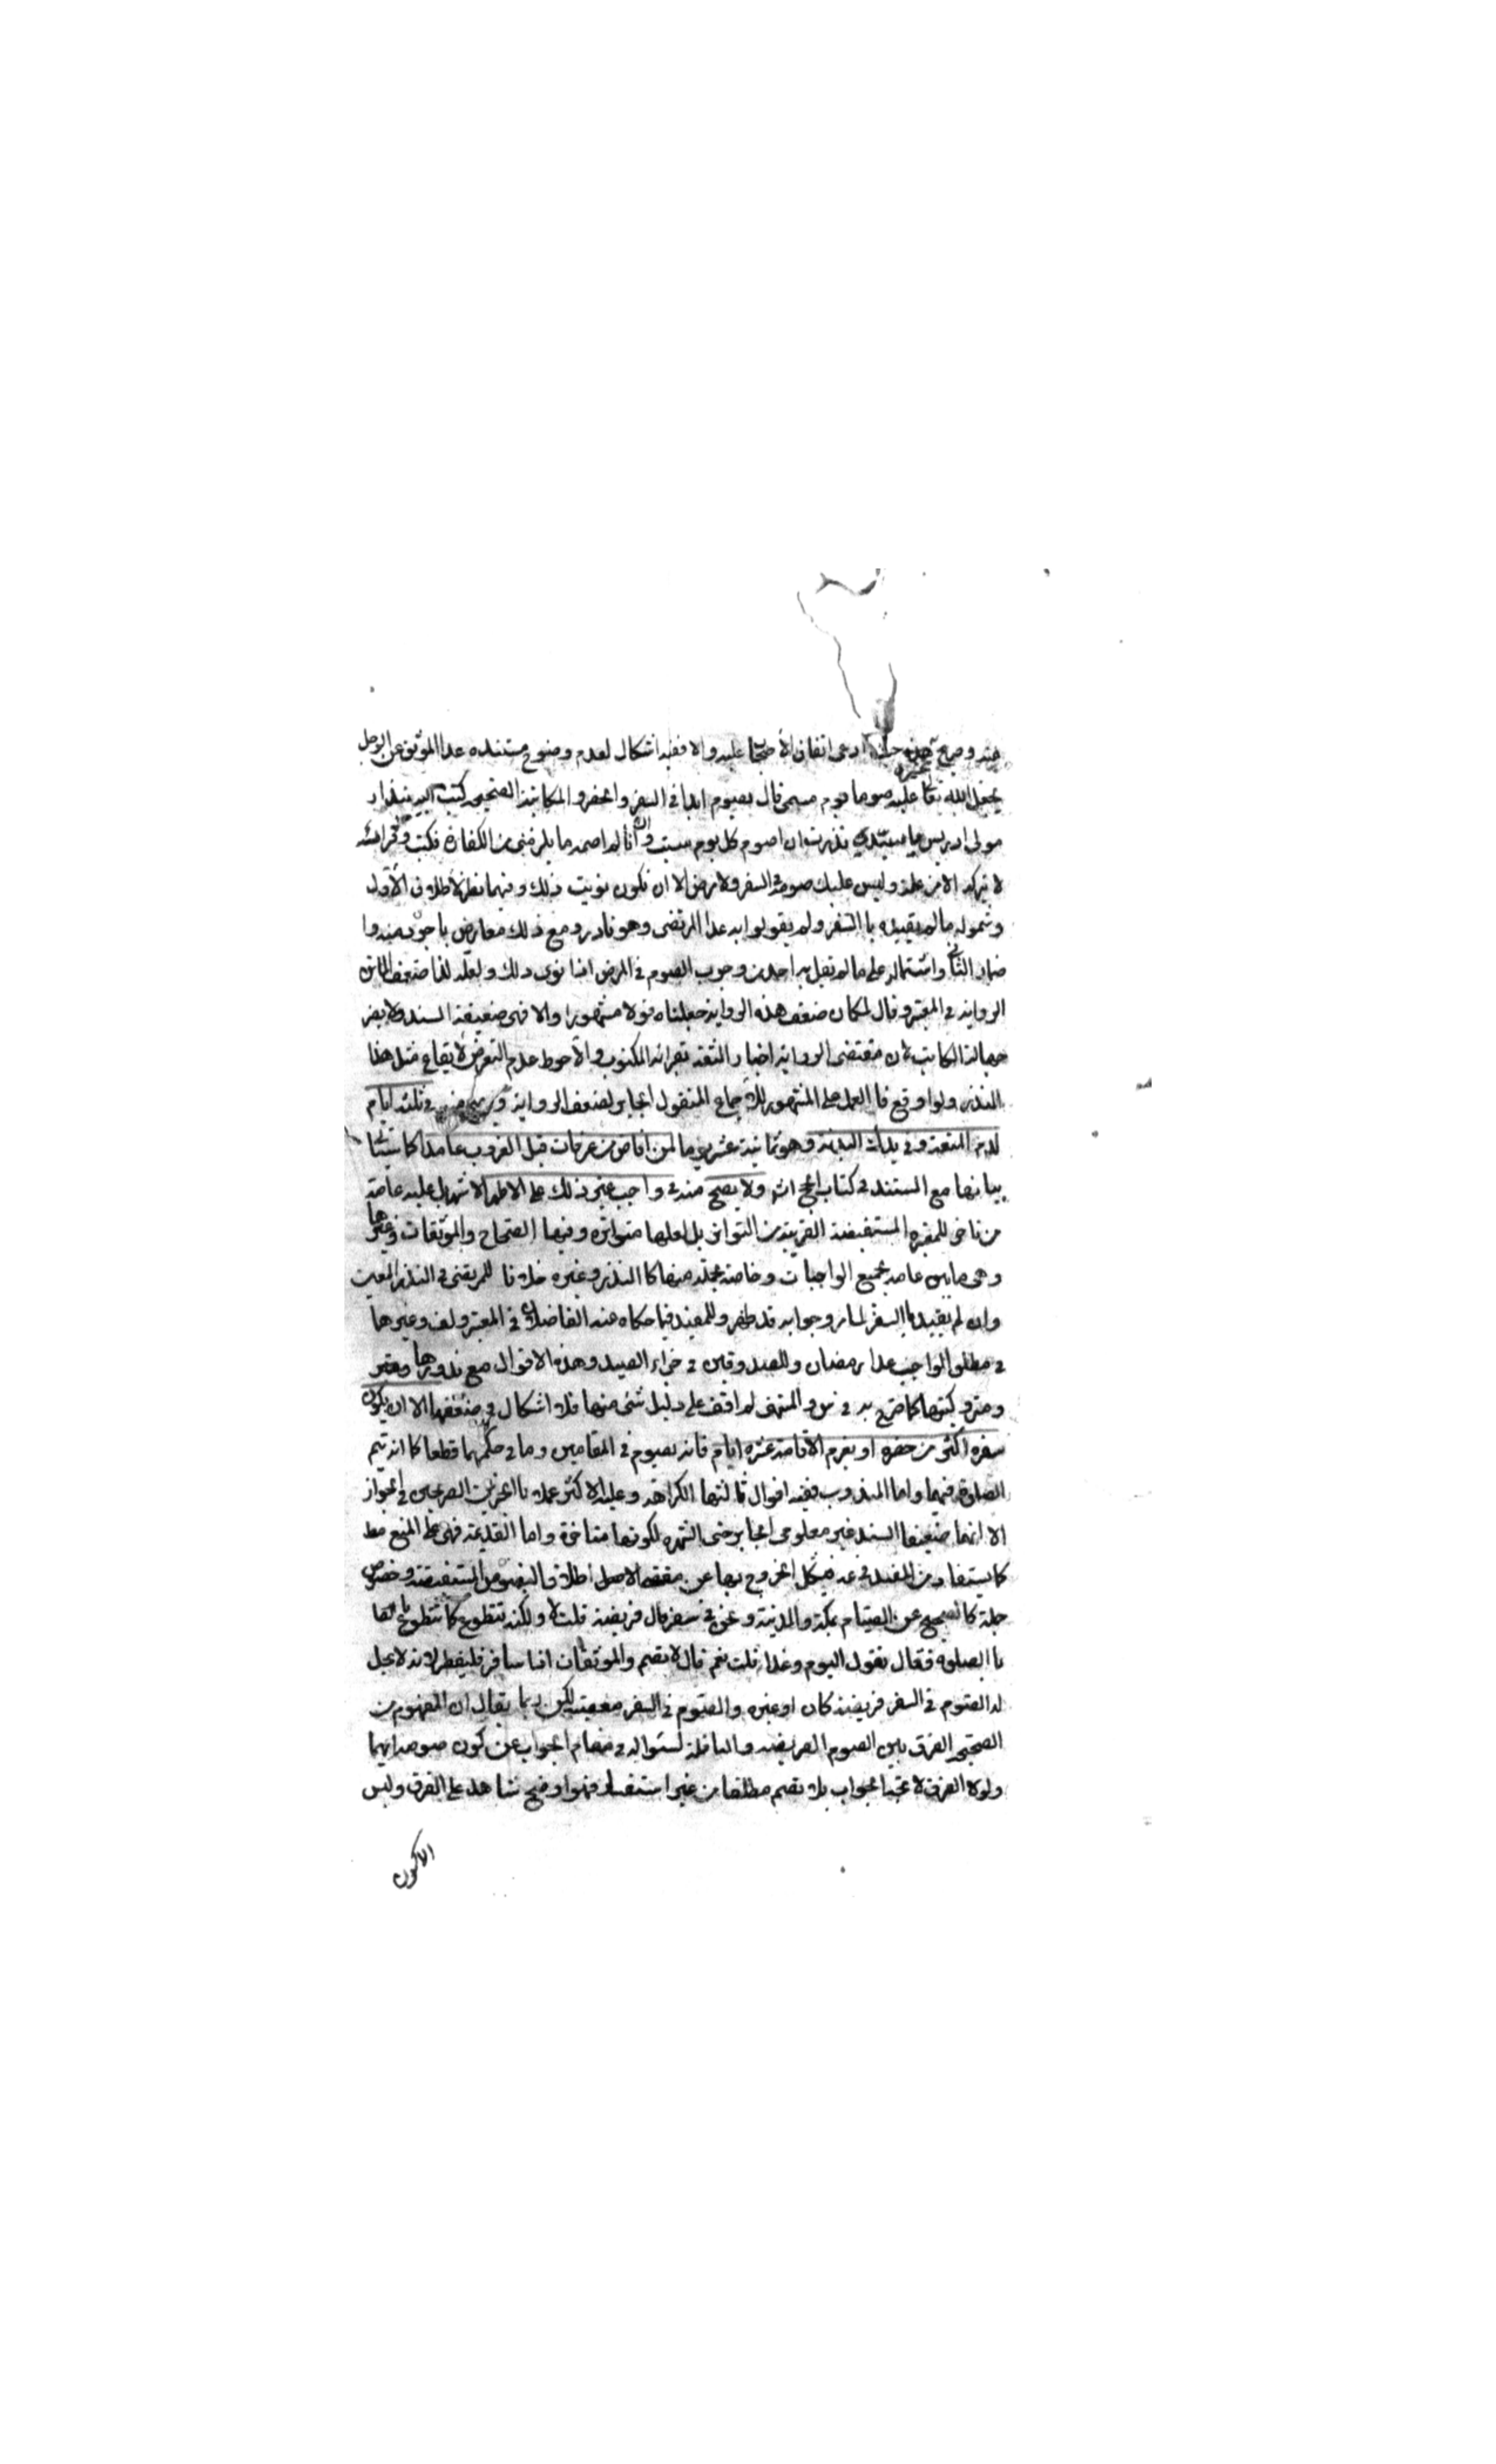 عنه وصرح جدنا ادعى اتفاق الأصحاب عليه والا ففيه اشكال لعدم وضوح مستنده عدا الموثق عن الرجل
يجعل الله تعالى عليه صوما يوم مسمى قال يصوم ابدا في السفر والحضر والمكاتبة الصحيحة كتب اليه بندار
مولى ادريس يا سيدي نذرت ان اصوم كل يوم سبت وان انا لم اصمه ما يلزمني من الكفارة فكتب وقرأته
لا تتركه الا من علة وليس عليك صومه في السفر ولا مرض الا ان تكون نويت ذلك وفيهما نظر لاطلاق الأول
وشموله ما لم يقيده باالسفر ولم يقولوا به عدا المرتضى وهو نادر ومع ذلك معارض باجود منه وا
ضمار الثاني واشتماله على ما لم يقل به احد من وجوب الصوم في المرض اذا نوى ذلك ولعله لذا ضعف الماتن
الرواية في المعتبر وقال لمكان ضعف هذه الرواية جعلناه قولا مشهورا والا فهي ضعيفة السند ولا يضر
جهالة الكاتب لان مقتضى الرواية اخبار الثقة بقرائة المكتوب والأحوط عدم التعرض لايقاع مثل هذا
النذر ولو اوقع فا العمل على المشهور للاجماع المنقول الجابر لضعف الرواية وفي ثلثة ايام
لدم المتعة وفي بدل البدنة وهو ثمانية عشر يوما لمن افاض من عرفات قبل الغروب عامدا كما سيأتي
بيانها مع المستند في كتاب الحج انش ولا يصح منه في واجب غير ذلك على الاظهر الاشهر بل عليه عامة
من تاخر للمعتبرة المستفيضة القريبة من التواتر بل لعلها متواترة وفيها الصحاح والموثقات وغيرها
وهي ما بين عامه لجميع الواجبات وخاصة بجملة منها كا النذر وغيره خلافا للمرتضى في النذر المعين
وان لم يقيد باالسفر لما مر وجوابه قد ظهر وللمفيد فيما حكاه عنه الفاضلان في المعتبر ولف وغيرهما
في مطلق الواجب عدا رمضان وللصدوقين في جزاء الصيد وهذه الاقوال مع ندورها
ومتروكيتها كما صرح به في س والمنتهى لم اقف على دليل شئ منها فلا اشكال في ضعفها الا ان يكون
سفره اكثر من حضره او يعزم الاقامة عشرة ايام فانه يصوم في المقامين وما في حكمهما قطعا كما انه يتم
الصلوة فيهما واما المندوب ففيه اقوال ثالثها الكراهة وعليه الاكثر عملا باالخبرين الصريحين في الجواز
الا انهما ضعيفا السند غير معلومي الجابر حتى الشهره لكونها متاخرة واما القديمة فهي على المنع مط
كما يستفاد من المفيد في عه فيشكل الخروج بها عن مقتضى الاصل اطلاق النصوص المستفيضة وخصوص
جملة كا الصحيح عن الصيام بمكة والمدينة ونحن في سفر قال فريضة قلت لا ولكنه تطوع كما نتطوع
باالصلوة فقال تقول اليوم وغدا قلت نعم قال لا تصم والموثقان اذا سافر فليفطر لانه لا يحل
له الصوم في السفر فريضة كان او غيره والصوم في السفر معصية لكن ربما يقال ان المفهوم من
الصحيح الفرق بين الصوم الفريضة والنافلة لسؤاله في مقام الجواب عن كون صومه ايهما
ولولا الفرق لاتجه الجواب بلا تصم مطلقا من غير استفسار فهو اوضح شاهد على الفرق وليس
الا كون